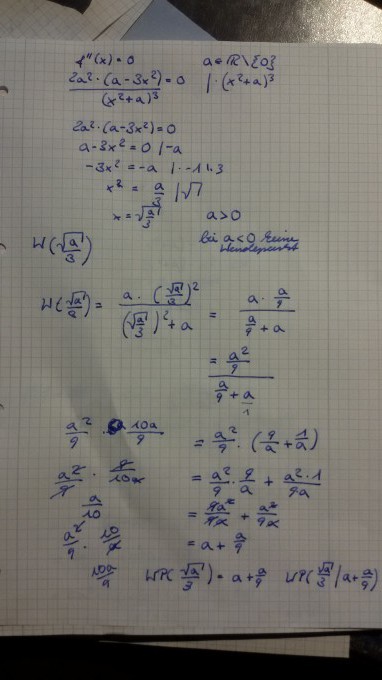 f''(x) = 0    a ∈ ℝ\{0}
2a²·(a-3x²) / (x²+a)³ = 0    | ·(x²+a)³
2a²·(a-3x²) = 0
a-3x² = 0 |-a
-3x² = -a | ·-1 |:3
x² = a/3 |√
x = √a/3    a>0
bei a<0 keine
Wendepunkt
W(√a/3)
W(√a/3) = a·(√a/3)² / ((√a/3)²+a) = a·a/9 / (a/9+a)
= a²/9 / (a/9 + a/1)
a²/9 · 10a/9 = a²/9 · (9/a + 1/a)
a²/9 · 9/10a = a²/9 · 9/a + a²·1/9a
a/10 = 9a²/9a + a²/9a
a²/9 · 10/a = a + a/9
10a/9    WP(√a/3) = a + a/9    WP(√a/3 | a + a/9)